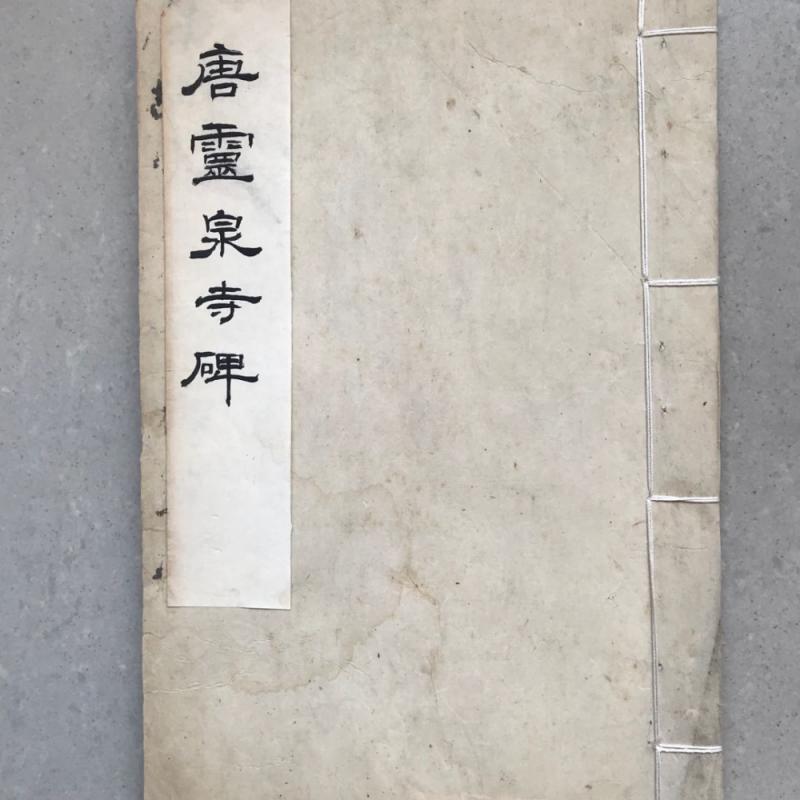 唐靈泉寺碑